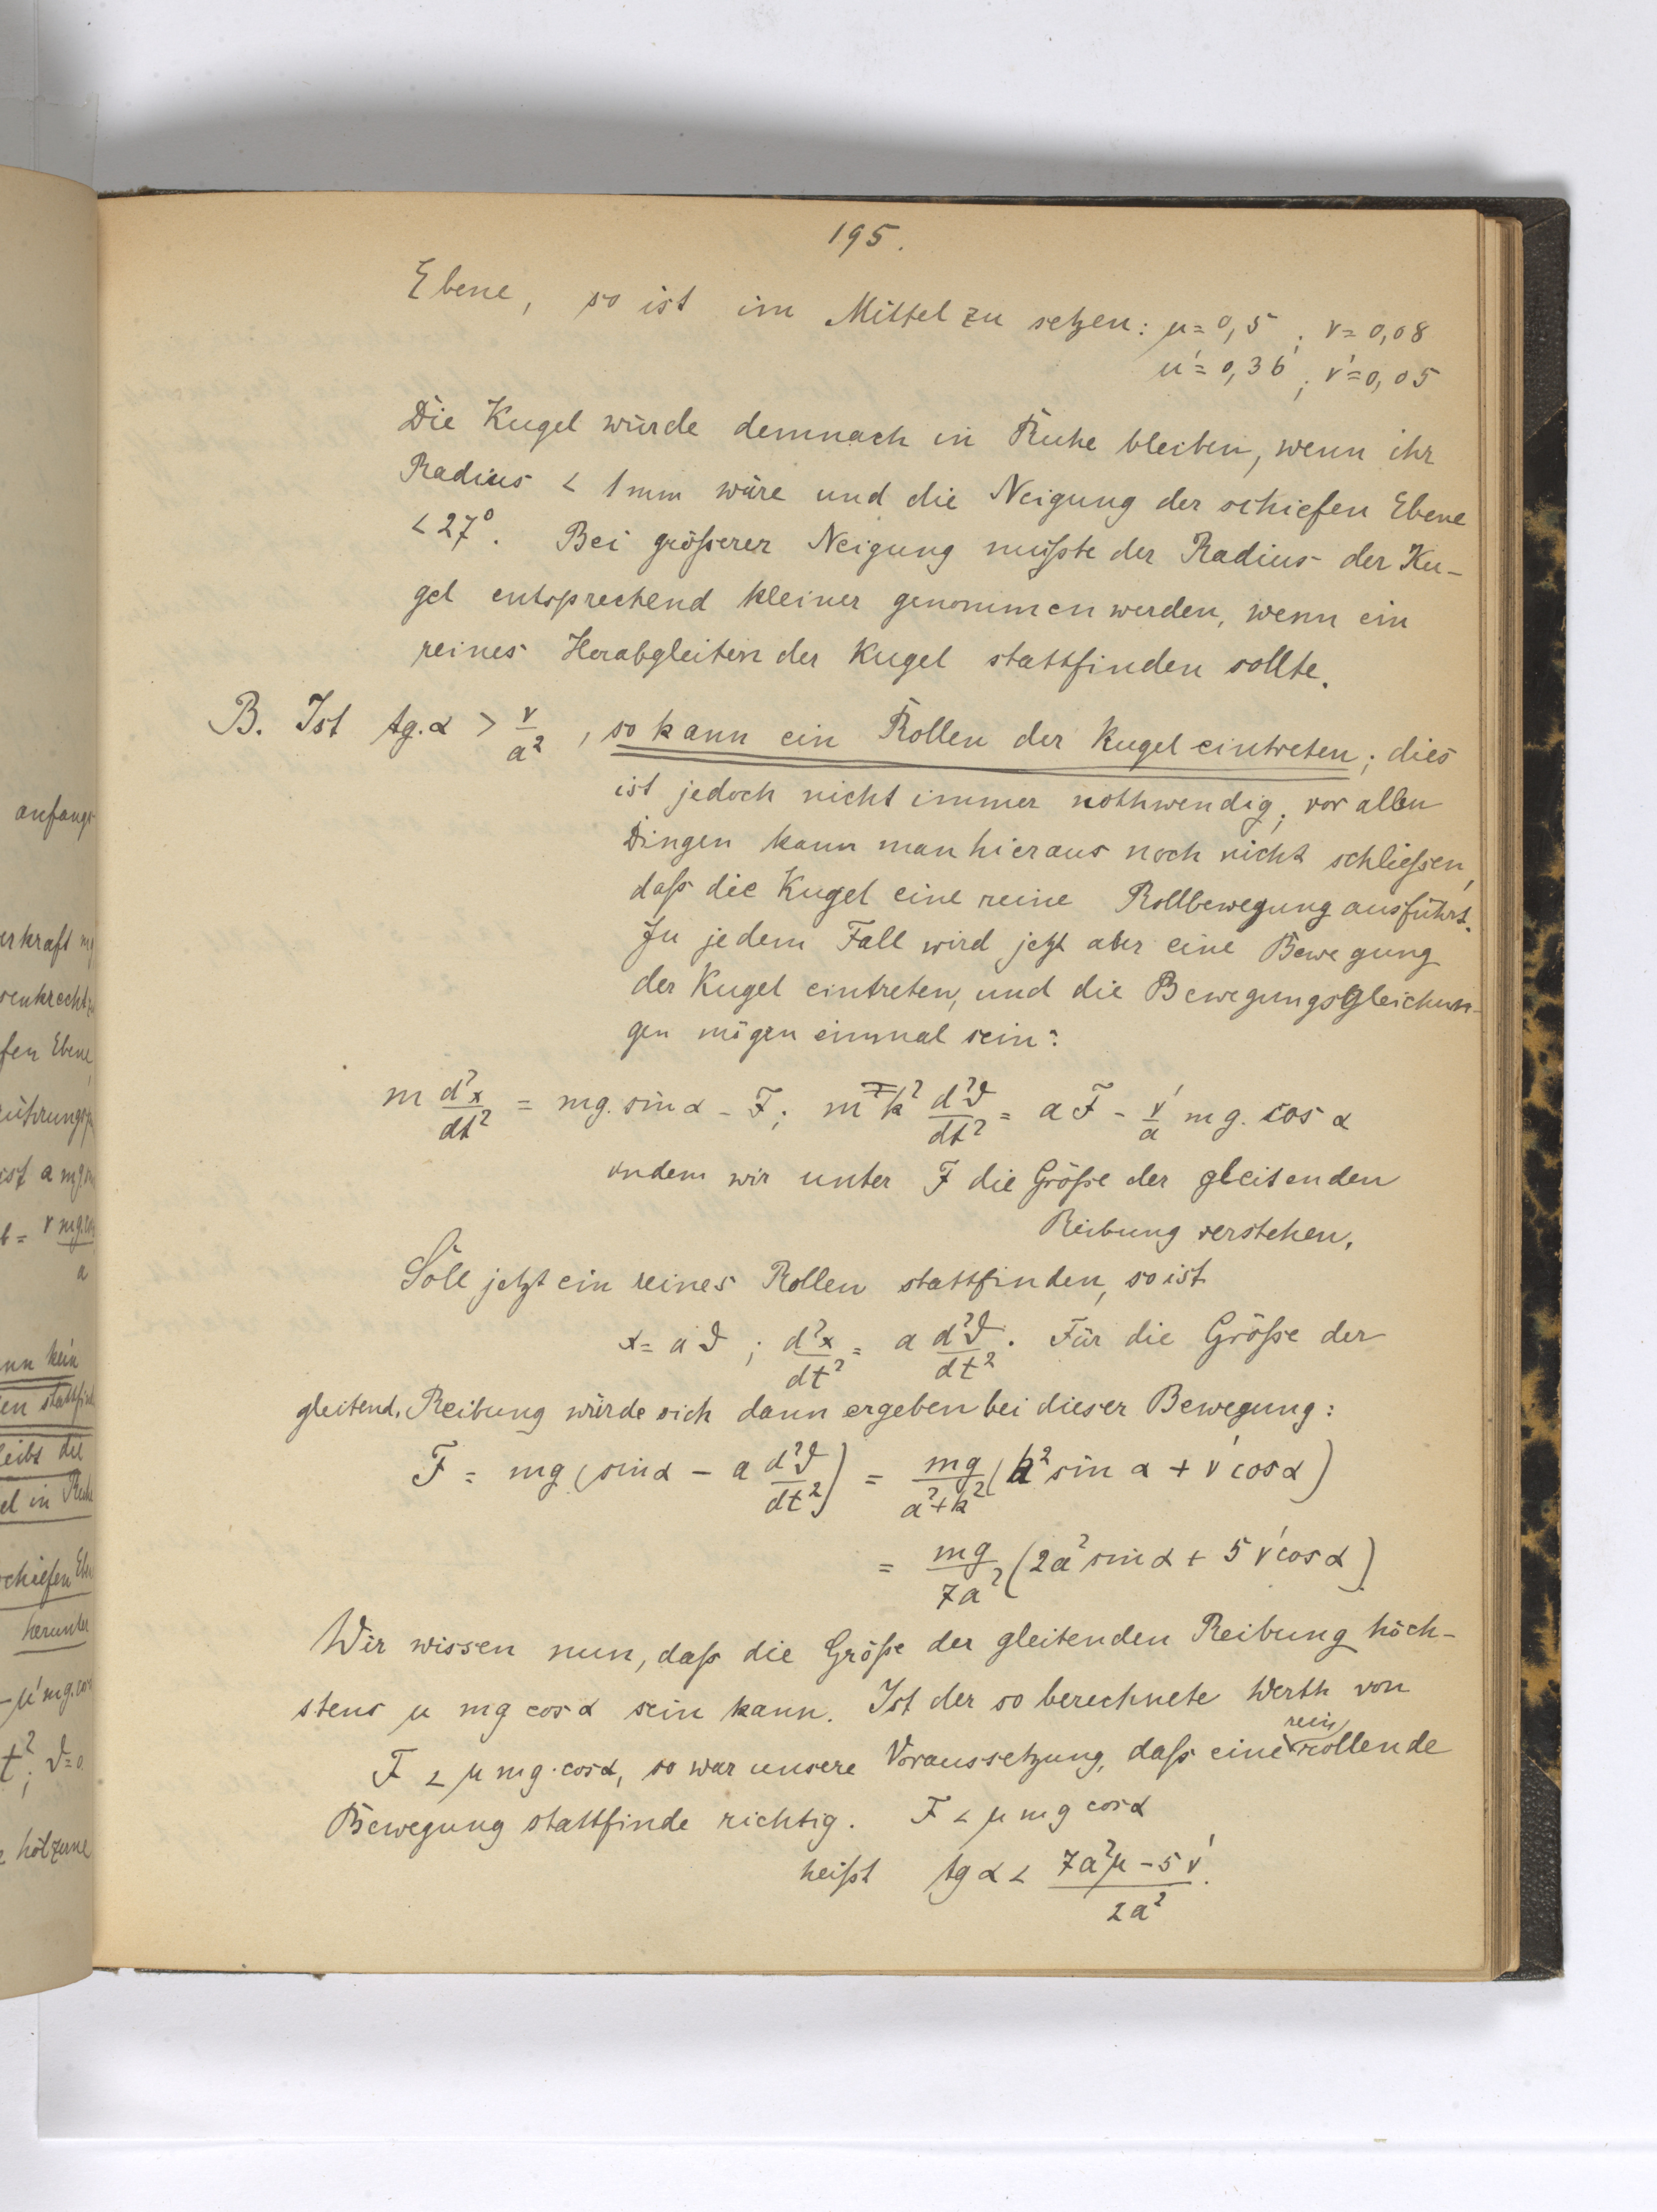 195.
Ebene, so ist im Mittel zu setzen: μ = 0,5 ; ν = 0,08
μ' = 0,36 ; ν' = 0,05
Die Kugel würde demnach in Ruhe bleiben, wenn ihr
Radius < 1 mm wäre und die Neigung der schiefen Ebene
< 27°. Bei größerer Neigung müßte der Radius der Ku-
gel entsprechend kleiner genommen werden, wenn ein
reines Herabgleiten der Kugel stattfinden sollte.
B. Ist tg. α > ν/a², so kann ein Rollen der Kugel eintreten; dies
ist jedoch nicht immer nothwendig; vor allen
Dingen kann man hieraus noch nicht schließen,
daß die Kugel eine reine Rollbewegung ausführt.
In jedem Fall wird jetzt aber eine Bewegung
der Kugel eintreten, und die Bewegungsgleichun-
gen mögen einmal sein:
m d²x/dt² = mg. sin α - F; m k² d²ϑ/dt² = a F - ν'/a mg. cos α
indem wir unter F die Größe der gleitenden
Reibung verstehen.
Soll jetzt ein reines Rollen stattfinden, so ist
x = a ϑ ; d²x/dt² = a d²ϑ/dt². Für die Größe der
gleitend. Reibung würde sich dann ergeben bei dieser Bewegung:
F = mg (sin α - a d²ϑ/dt²) = mg/(a²+k²) (k² sin α + ν' cos α)
= mg/7a² (2a² sin α + 5 ν' cos α)
Wir wissen nun, daß die Größe der gleitenden Reibung höch-
stens μ mg cos α sein kann. Ist der so berechnete Werth von
F < μ mg. cos α, so war unsere Voraussetzung, daß eine rein rollende
Bewegung stattfinde richtig. F < μ mg cos α
heißt tg α < (7a²μ - 5 ν')/2a².
anfangs
senkrecht
fen Ebene
ist a mg
ν mg. cos
a
nn kein
en stattfin
leibt die
el in Ruhe
schiefen Eben
herunter
- μ' mg. cos
t²; ϑ = 0
hölzerne